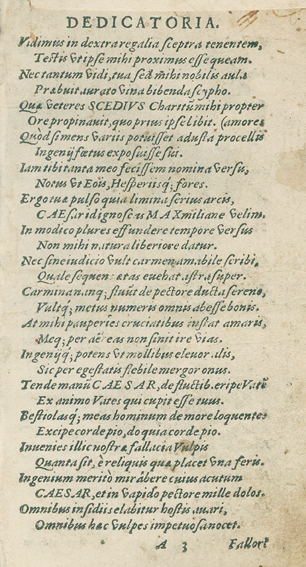 DEDICATORIA.
Vidimus in dextra regalia sceptra tenentem,
Testis ut ipse mihi proximus esse queam.
Nec tantum vidi, tua sed mihi nobilis aula
Præbuit aurato vina bibenda scypho.
Quæ veteres SCEDIVS Charitum mihi propter
Ore propinavit, quo prius ipse libit. (amorẽ
Quòd si mens variis potuisset adusta procellis
Ingenij fœtus exposuisse sui.
Iam tibi tanta meo fecissem nomina versu,
Notus ut Eois, Hesperiisq; fores.
Ergo tuæ pulso quia limina serius arcis,
CAESar idignosce ô MAXmiliane velim.
In modico plures effundere tempore versus
Non mihi natura liberiore datur.
Nec sine iudicio vult carmen amabile scribi,
Quale sequen ætas euehat astra super.
Carmina nanq; fluũt de pectore ducta sereno,
Vultq; metus numeris omnis abesse bonis.
At mihi pauperies cruciatibus instat amaris,
Meq; per eas non sinit ire vias.
Ingenijq; potens ut mollibus eleuor alis,
Sic per egestatu flebile mergor onus.
Tende manũ CAESAR, de fluctib. eripe Vatẽ
Ex animo Vates qui cupit esse tuus.
Bestiolasq; meas hominum de more loquentes
Excipe corde pio, do quia corde pio.
Invenies illic nostræ fallacia Vulpis
Quanta sit, è reliquis quæ placet una feris.
Ingenium meritò mirabere cuius acutum
CAESAR, et in vapido pectore mille dolos.
Omnibus insidiis elabitur hostis avari,
Omnibus hæc vulpes impetuosa nocet.
A 3 Fallort